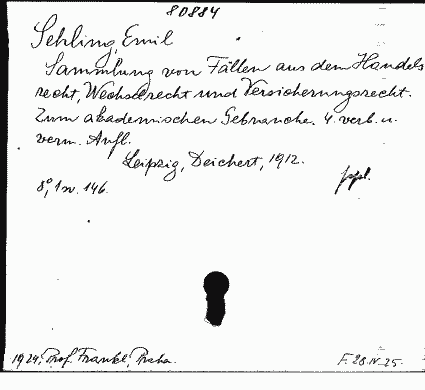 80884
Sehling, Emil
Sammlung von Fällen aus dem Handels
recht, Wechselrecht und Versicherungsrecht.
Zum akademischen Gebrauche. 4. verb. u.
verm. Aufl.
Leipzig, Deichert, 1912.
8°, 1 sv. 146.
1924, Prof. Frankl, Praha.
F. 28.IV.25.